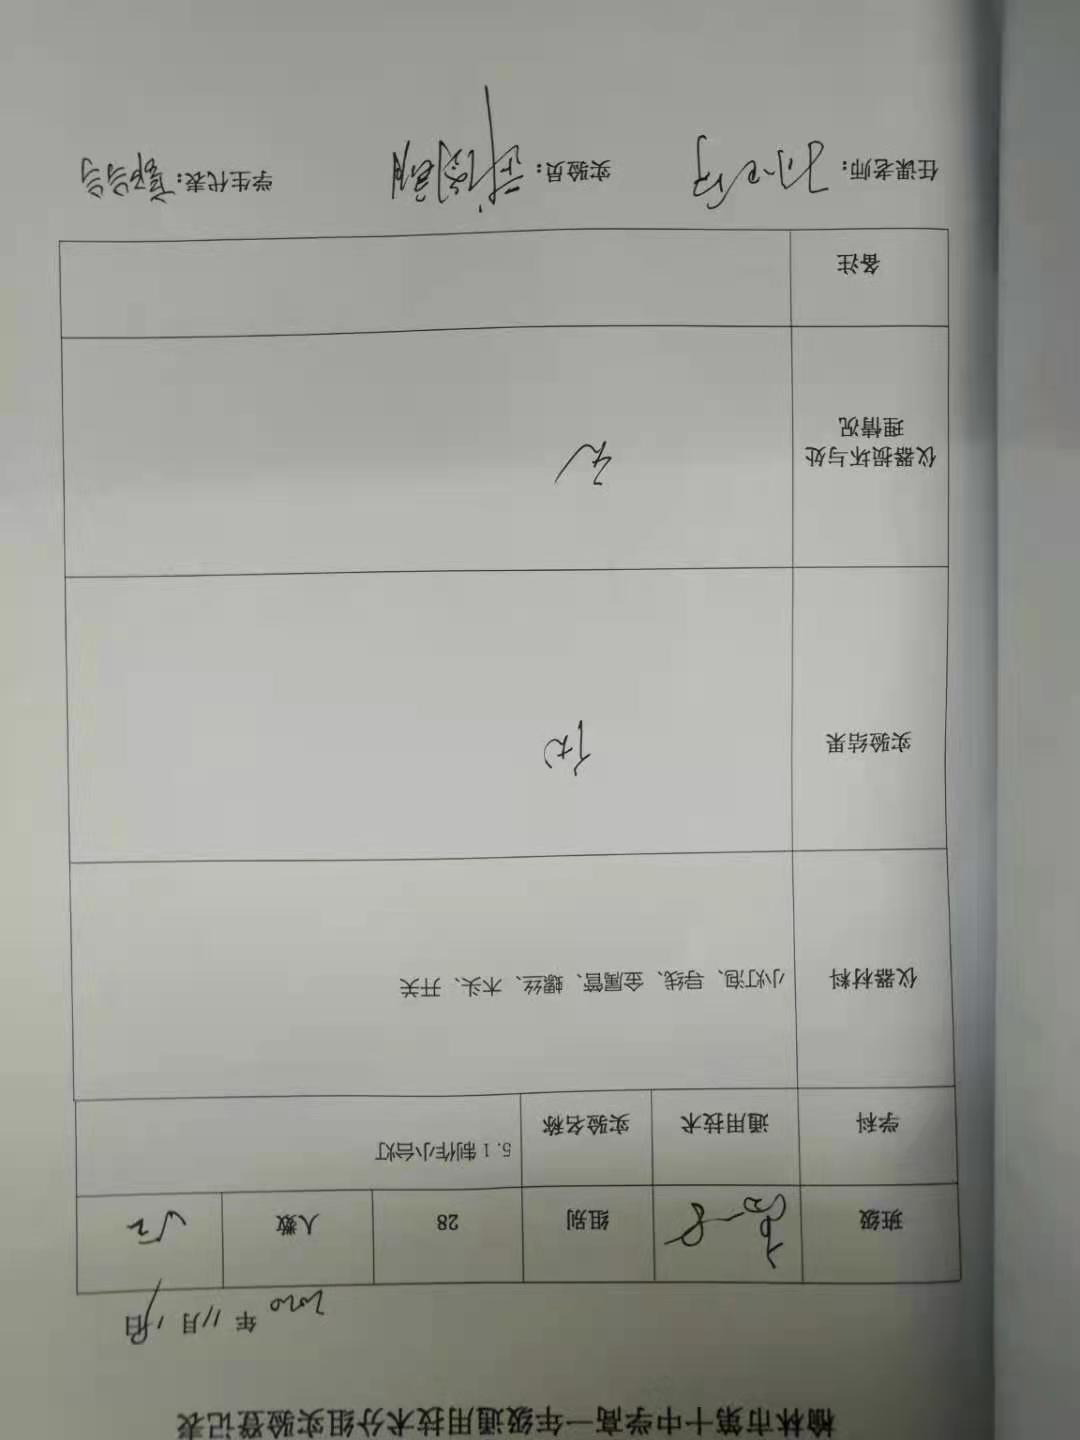 榆林市第十中学高一年级通用技术分组实验登记表
2020 年 11 月 18 日
班级 高一8 组别 28 人数 52
学科 通用技术 实验名称 5.1 制作小台灯
仪器材料 小灯泡、导线、金属管、螺丝、木头、开关
实验结果 优
仪器损坏与处
理情况 无
备注
任课老师： 实验员： 学生代表：